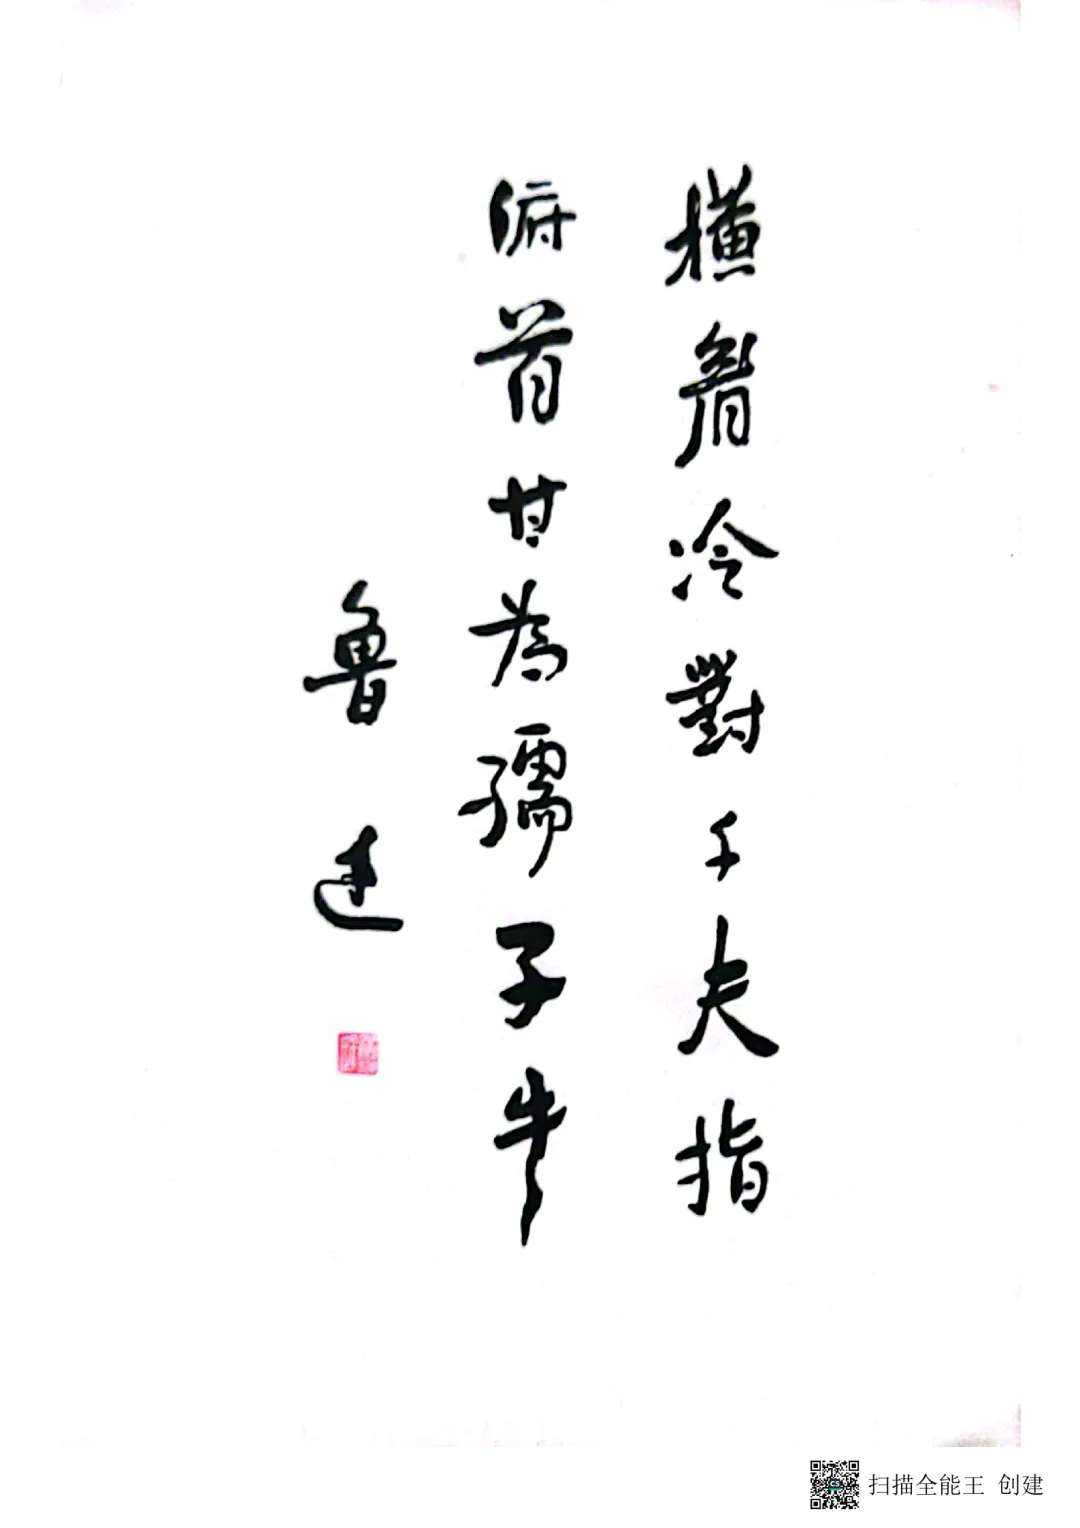 橫眉冷對千夫指
俯首甘為孺子牛
魯迅
扫描全能王 创建